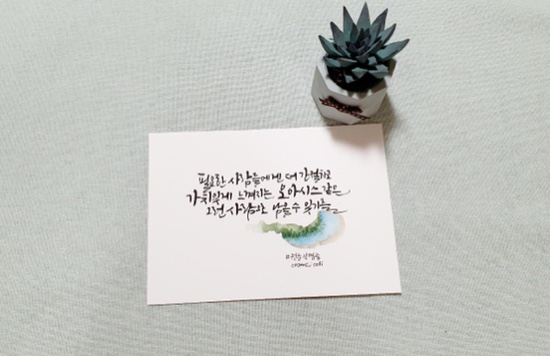 필요한 사람들에겐 더 간절하고
가치있게 느껴지는 오아시스 같은
그런 사람으로 남을 수 있기를